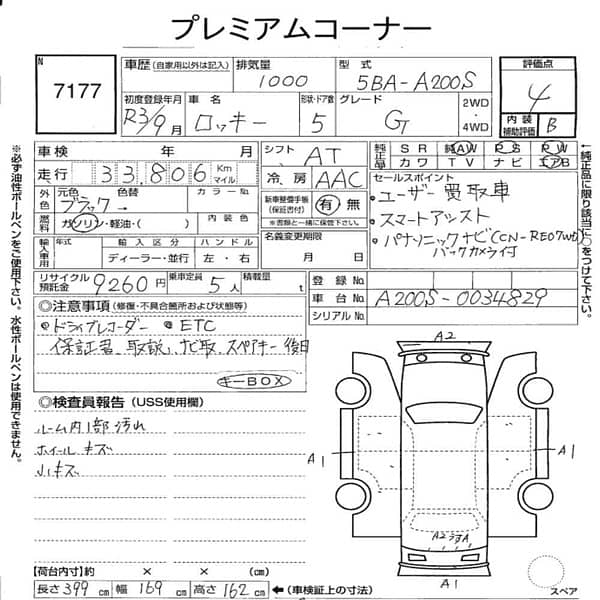 プレミアムコーナー
N
7177
車歴 (自家用以外は記入)
排気量
1000
型式
5BA-A200S
評価点
4
初度登録年月
R3/9月
車名
ロッキー
形状・ドア数
5
グレード
G
2WD
4WD
内装
補助評価
B
車検 年 月
シフト
AT
純正品
SR 純AW PS PW
カワ TV ナビ エアB
走行 33,806 Km
マイル
冷房
AAC
セールスポイント
・ユーザー買取車
・スマートアシスト
・パナソニックナビ(CN-RE07WD)
バックカメラ付
外色
元色 色替
ブラック→
カラーNo.
新車整備手帳
(保証書付)
有・無
※書類と一緒に保管下さい。
燃料
ガソリン・軽油・( )
内装色
名義変更期限
月 日
輸入車用
年式 輸入区分 ハンドル
ディーラー・並行 左・右
リサイクル
預託金
9260円
乗車定員
5人
積載量
t
登録No.
車台No.
A200S-0034829
シリアルNo.
◎注意事項(修復・不具合箇所および状態等)
・ドライブレコーダー ・ETC
保証書、取説、ナビ取、スペアキー後日
キーBOX
◎検査員報告 (USS使用欄)
ルーム内1部汚れ
ホイールキズ
小キズ
A2
A1
A1
A2
A1
【荷台内寸】約 × × (cm)
長さ 399 cm 幅 169 cm 高さ 162 cm ←(車検証上の寸法)
スペア
※必ず油性ボールペンをご使用下さい。水性ボールペンは使用できません。
←純正品に限り該当に○をつけて下さい。